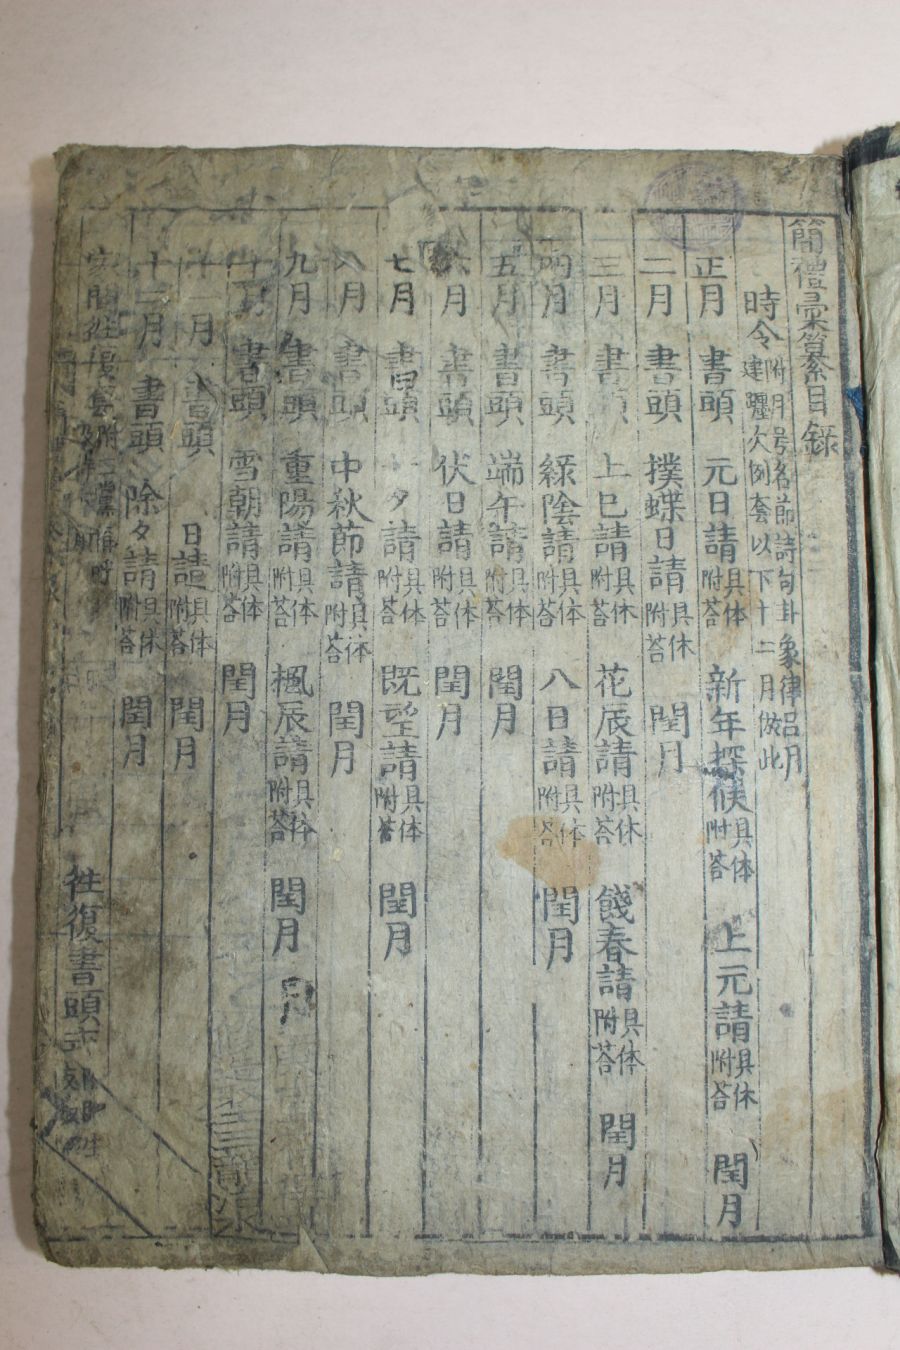 簡禮彙纂目錄
時令 附月号名節詩句卦象律呂月建曆欠例套以下十二月倣此
正月 書頭 元日請 具体附答 新年探候 具体附答 上元請 具体附答 閏月
二月 書頭 撲蝶日請 具体附答 閏月
三月 書頭 上巳請 具体附答 花辰請 具体附答 餞春請 具体附答 閏月
四月 書頭 綠陰請 具体附答 八日請 具体附答 閏月
五月 書頭 端午請 具体附答 閏月
六月 書頭 伏日請 具体附答 閏月
七月 書頭 夕請 具体附答 既望請 具体附答 閏月
八月 書頭 中秋節請 具体附答 閏月
九月 書頭 重陽請 具体附答 楓辰請 具体附答 閏月
十月 書頭 雪朝請 具体附答 閏月
十一月 書頭 日請 具体附答 閏月
十二月 書頭 除夕請 具体附答 閏月
往復 附 往復書頭式